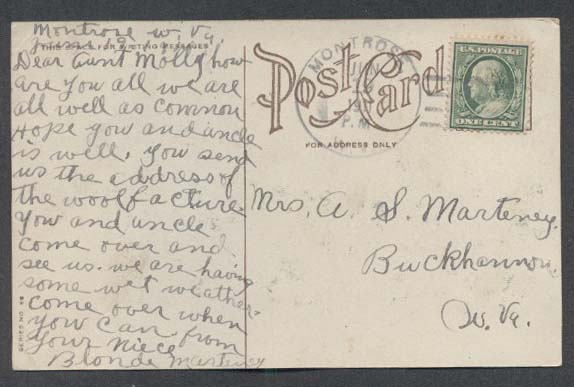 Montrose W. Va.
June 19
THIS SPACE FOR WRITING MESSAGES
Dear Aunt Molly how
are you all we are
all well as common
Hope you and uncle
is well. you send
us the address of
the woolfacture.
you and uncle
come over and
see us. we are having
some wet weather
come over when
you can from
your niece
Blonde Marteney
SERIES NO.
Post Card
FOR ADDRESS ONLY
MONTROSE
JUN
P.M.
U.S. POSTAGE
ONE CENT
Mrs. A. S. Marteney.
Buckhannon.
W. Va.